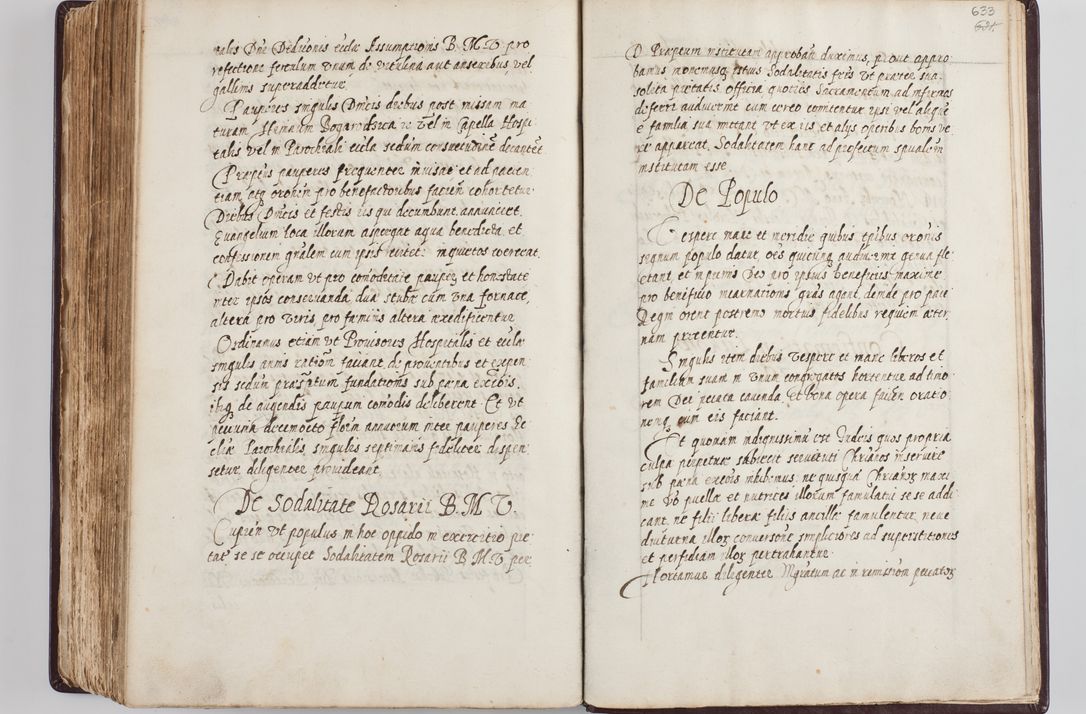 nalis Dnē Deductionis eccłæ Assumptionis B. M. V. pro
refectione ferculum vnum de vitulina aut anseribus vel
gallinis superaddetur.
Pauperes singulis Dnicis diebus post missam ma
turam Himnum Bogarodzica &c vel in Capella Hospi
talis vel in Parochiali eccla secdum consuetudinē decantēt
Præptis pauperes frequenter inuisat et ad pacien
tiam atq; orõnem pro benefactoribus facien cohortetur
Diebus Dnicis et festis iis qui decumbunt annunciet
Euangelium loca illorum aspergat aqua benedicta et
confessionem gnālem cum ipsis recitet: inquietos coerceat.
Dabit operam vt pro comoditate pauperū et honestate
inter ipsos conseruanda duæ stubæ cum vna fornace,
altera pro viris, pro faminis altera reædificentur
Ordinamus etiam vt Prouisores Hospitalis et eccłæ
singulis annis rationē faciant de prouentibus et expen
sis secdum præscriptum fundationis sub pœna excōis.
ibiq; de augendis pauperum comodis deliberent Et vt
pecunia decem octo floren annuorum inter pauperes Ec
clæ Parochialis, singulis septimanis fideliter dispen
setur diligenter prouideant
De Sodalitate Rosarii B. M. V.
Cupien vt populus in hoc oppido in exercitio pie
tatis se se occupet Sodalitatem Rosarii B M V per

633
D. Præptum institutam approbān duximus, prout appro
bamus monemusq; istius Sodalitatis frēs vt præter sua
solita pietatis officia quoties Sacramentum ad infirmos
deferri audiuerint cum cereo comitentur ipsi vel aliquē
e familia sua mittant vt ex iis et aliis operibus bonis ve
re appareat Sodalitatem hanc ad profectum spūalem
institutam esse
De Populo
Vespere mane et meridie quibus tpībus orõnis
signum populo datur oēs quicunq; audiuerint genua fle
ctant, et in primis Deo pro ipsius beneficiis maxime
pro beneficio incarnationis grās agant, deinde pro pace
Regni orent postremo mortuis fidelibus requiem æter
nam precentur.
Singulis item diebus vespere et mane liberos et
familiam suam in vnum congregatos hortentur ad timo
rem Dei peccata cauenda et bona opera facien oratio
nemq; cum eis faciant.
Et quoniam indignissimū est Iudeis quos propria
culpa perpetuæ subiecit seruituti Chrīanos inseruire
sub pœna excōis inhibemus: ne quisquā Chrīanoȝ maxi
me vō puellæ et nutrices illorum famulatui se se addi
cant ne filii liberæ filiis ancillæ famulentur neue
diuturna illoȝ conuersone simpliciores ad superstitiones
et perfidiam illoȝ pertrahantur.
Hortamur diligenter Migratum ac in remissiōm peccatoȝ